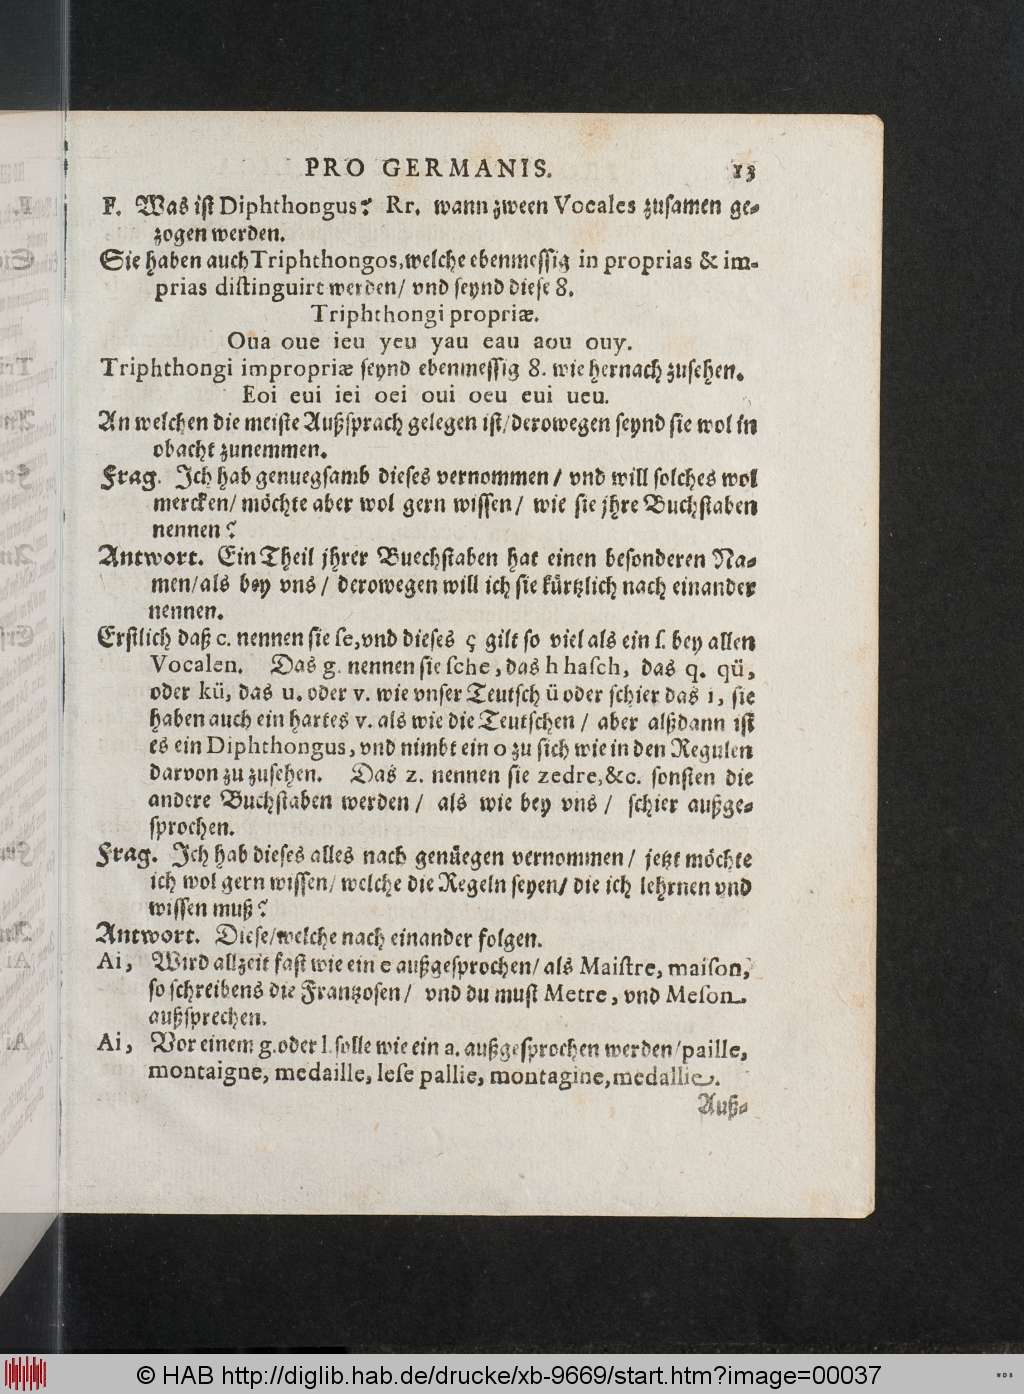 PRO GERMANIS. 13
F. Was ist Diphthongus? Rr. wann zween Vocales zusamen ge-
zogen werden.
Sie haben auch Triphthongos, welche ebenmessig in proprias & im-
prias distinguirt werden/ vnd seynd diese 8.
Triphthongi propriæ.
Oua oue ieu yeu yau eau aou ouy.
Triphthongi impropriæ seynd ebenmessig 8. wie hernach zusehen.
Eoi eui iei oei oui oeu eui ueu.
An welchen die meiste Außsprach gelegen ist/ derowegen seynd sie wol in
obacht zunemmen.
Frag. Ich hab genuegsamb dieses vernommen/ vnd will solches wol
mercken/ möchte aber wol gern wissen/ wie sie jhre Buchstaben
nennen?
Antwort. Ein Theil jhrer Buechstaben hat einen besonderen Na-
men/ als bey vns/ derowegen will ich sie kürtzlich nach einander
nennen.
Erstlich daß c. nennen sie se, vnd dieses ç gilt so viel als ein s. bey allen
Vocalen. Das g. nennen sie sche, das h hasch, das q. qü,
oder kü, das u. oder v. wie vnser Teutsch ü oder schier das i, sie
haben auch ein hartes v. als wie die Teutschen/ aber alßdann ist
es ein Diphthongus, vnd nimbt ein o zu sich wie in den Regulen
darvon zu zusehen. Das z. nennen sie zedre, &c. sonsten die
andere Buchstaben werden/ als wie bey vns/ schier außge-
sprochen.
Frag. Ich hab dieses alles nach genüegen vernommen/ jetzt möchte
ich wol gern wissen/ welche die Regeln seyen/ die ich lehrnen vnd
wissen muß?
Antwort. Diese/ welche nach einander folgen.
Ai, Wird allzeit fast wie ein e außgesprochen/ als Maistre, maison,
so schreibens die Frantzosen/ vnd du must Metre, vnd Meson.
außsprechen.
Ai, Vor einem g. oder l. solle wie ein a. außgesprochen werden/ paille,
montaigne, medaille, lese pallie, montagine, medallie.
Auß-
© HAB http://diglib.hab.de/drucke/xb-9669/start.htm?image=00037